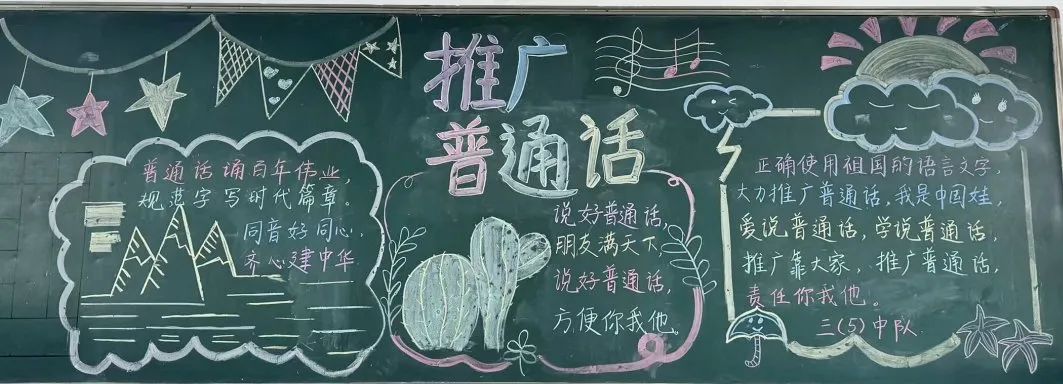 推广
普通话
普通话 诵百年伟业，
规范字 写时代篇章。
同音好同心，
齐心建中华
说好普通话，
朋友满天下，
说好普通话，
方便你我他。
正确使用祖国的语言文字，
大力推广普通话，我是中国娃，
爱说普通话，学说普通话，
推广靠大家，推广普通话，
责任你我他。
三(5)中队